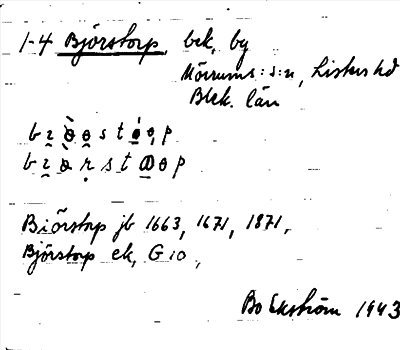 1-4 Björstorp, bck, by
Mörrums s:n, Listers hd
Blek. län
Biörstorp jb 1663, 1671, 1871,
Björstorp ek, G 10,
Bo Ekström 1943